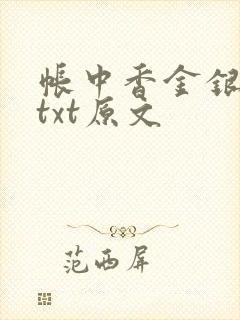 帐中香金银
txt原文
范西屏